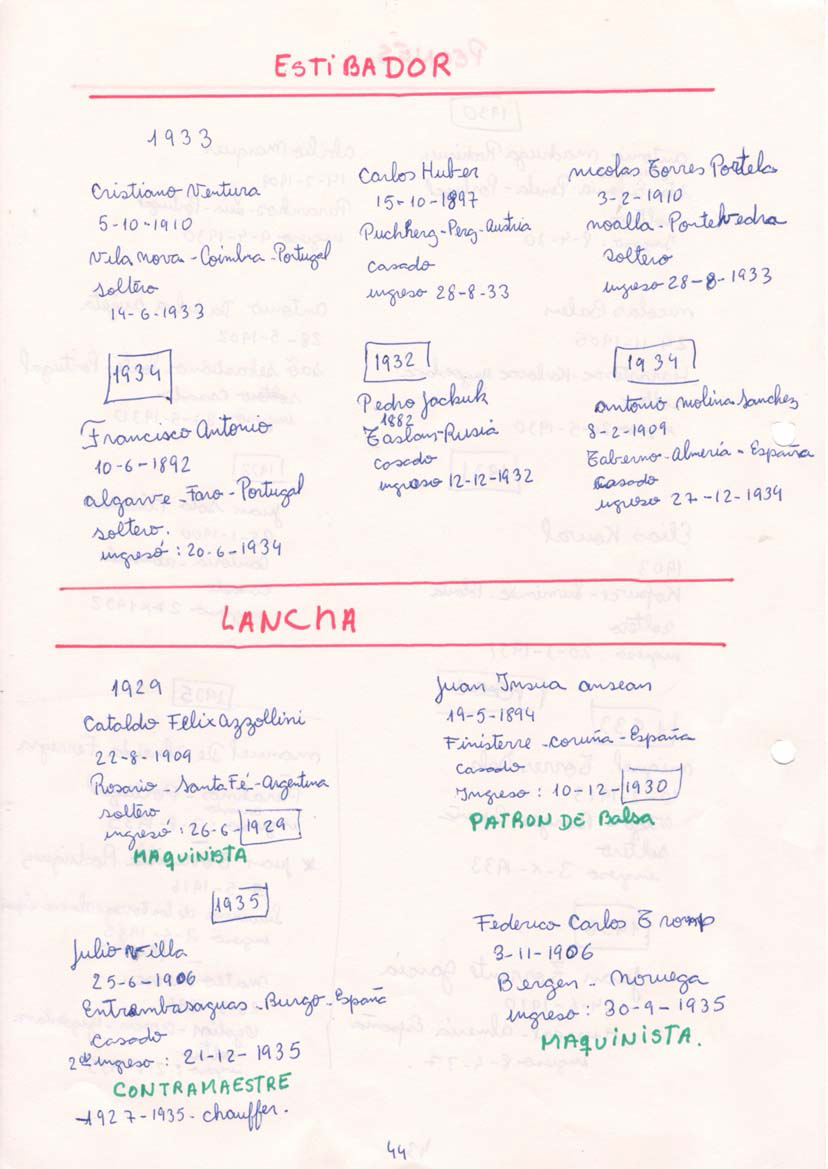 ESTIBADOR
1933
Cristiano Ventura
5-10-1910
Vila Nova - Coimbra - Portugal
soltero
14-6-1933
Carlos Huber
15-10-1897
Puchberg-Perg-Austria
casado
ingreso 28-8-33
Nicolas Torres Portela
3-2-1910
Noalla-Pontevedra
soltero
ingreso 28-8-1933
1934
Francisco Antonio
10-6-1892
Algarve-Faro-Portugal
soltero.
ingresó: 20-6-1934
1932
Pedro Jachuk
1882
Taslam-Rusia
casado
ingreso 12-12-1932
1934
Antonio Molina Sanchez
8-2-1909
Taberno-Almería-España
Casado
ingreso 27-12-1934
LANCHA
1929
Cataldo Félix Azzollini
22-8-1909
Rosario-Santa Fé-Argentina
soltero
ingresó: 26-6-1929
MAQUINISTA
Juan Insua Ansean
19-5-1894
Finisterre-Coruña-España
casado
Ingreso: 10-12-1930
PATRON DE Balsa
1935
Julio Villa
25-6-1906
Entrambasaguas-Burgo-España
Casado
2do ingreso: 21-12-1935
CONTRAMAESTRE
-1927-1935-chauffer.
Federico Carlos Tromp
3-11-1906
Bergen-Noruega
ingreso: 30-9-1935
MAQUINISTA.
44